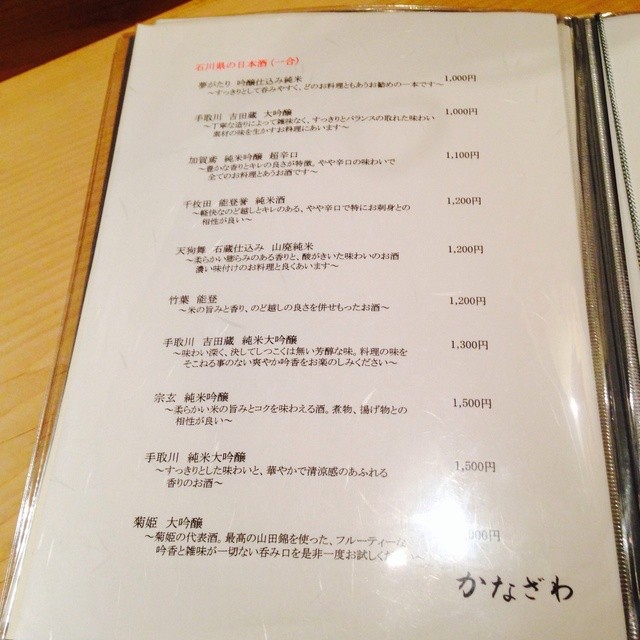 石川県の日本酒（一合）
夢がたり 吟醸仕込み純米 1,000円
～すっきりとして呑みやすく、どのお料理ともあうお勧めの一本です～
手取川 吉田蔵 大吟醸 1,000円
～丁寧な造りによって雑味なく、すっきりとバランスの取れた味わい
素材の味を生かすお料理にあいます～
加賀鳶 純米吟醸 超辛口 1,100円
～豊かな香りとキレの良さが特徴。やや辛口の味わいで
全てのお料理とあうお酒です～
千枚田 能登誉 純米酒 1,200円
～軽快なのど越しとキレのある、やや辛口で特にお刺身との
相性が良い～
天狗舞 石蔵仕込み 山廃純米 1,200円
～柔らかい膨らみのある香りと、酸がきいた味わいのお酒
濃い味付けのお料理と良くあいます～
竹葉 能登 1,200円
～米の旨みと香り、のど越しの良さを併せもったお酒～
手取川 吉田蔵 純米大吟醸 1,300円
～味わい深く、決してしつこくは無い芳醇な味。料理の味を
そこねる事のない爽やか吟香をお楽しみください～
宗玄 純米吟醸 1,500円
～柔らかい米の旨みとコクを味わえる酒。煮物、揚げ物との
相性が良い～
手取川 純米大吟醸 1,500円
～すっきりとした味わいと、華やかで清涼感のあふれる
香りのお酒～
菊姫 大吟醸 000円
～菊姫の代表酒。最高の山田錦を使った、フルーティーな
吟香と雑味が一切ない呑み口を是非一度お試しくだ
かなざわ